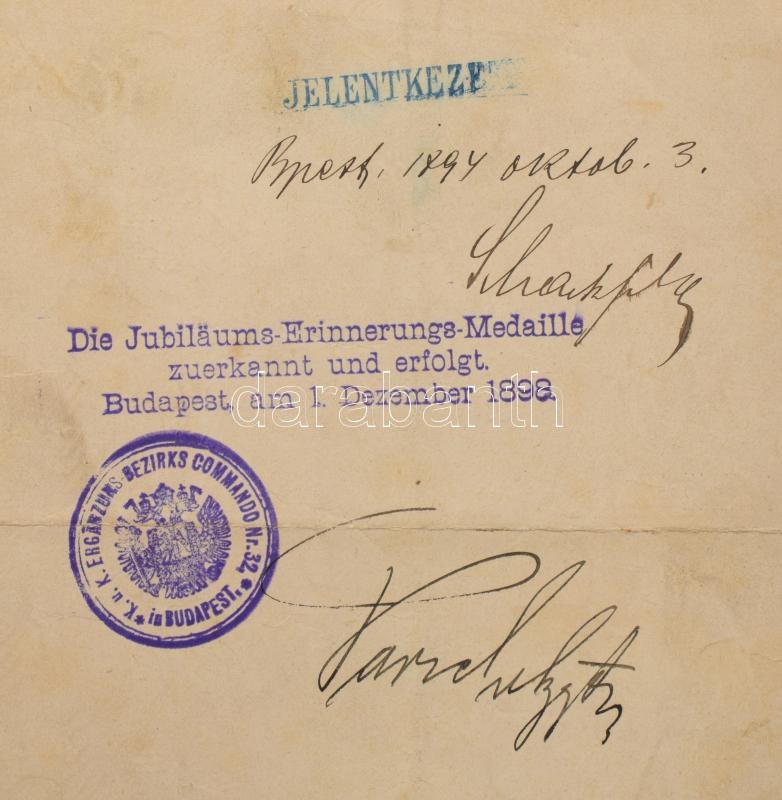 JELENTKEZE
Bpest, 1894 oktob. 3.
Die Jubiläums-Erinnerungs-Medaille
zuerkannt und erfolgt.
Budapest, am 1. Dezember 1898
darabanth
* K. u. K. ERGÄNZUNS-BEZIRKS COMMANDO Nr. 32. *
in BUDAPEST.